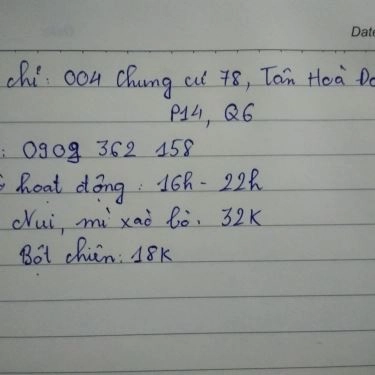 Date
chỉ: 004 Chung cư 78, Tân Hoà
P14, Q6
: 0909 362 158
hoạt động: 16h - 22h
Nui, mì xào bò. 32K
Bột chiên: 18K